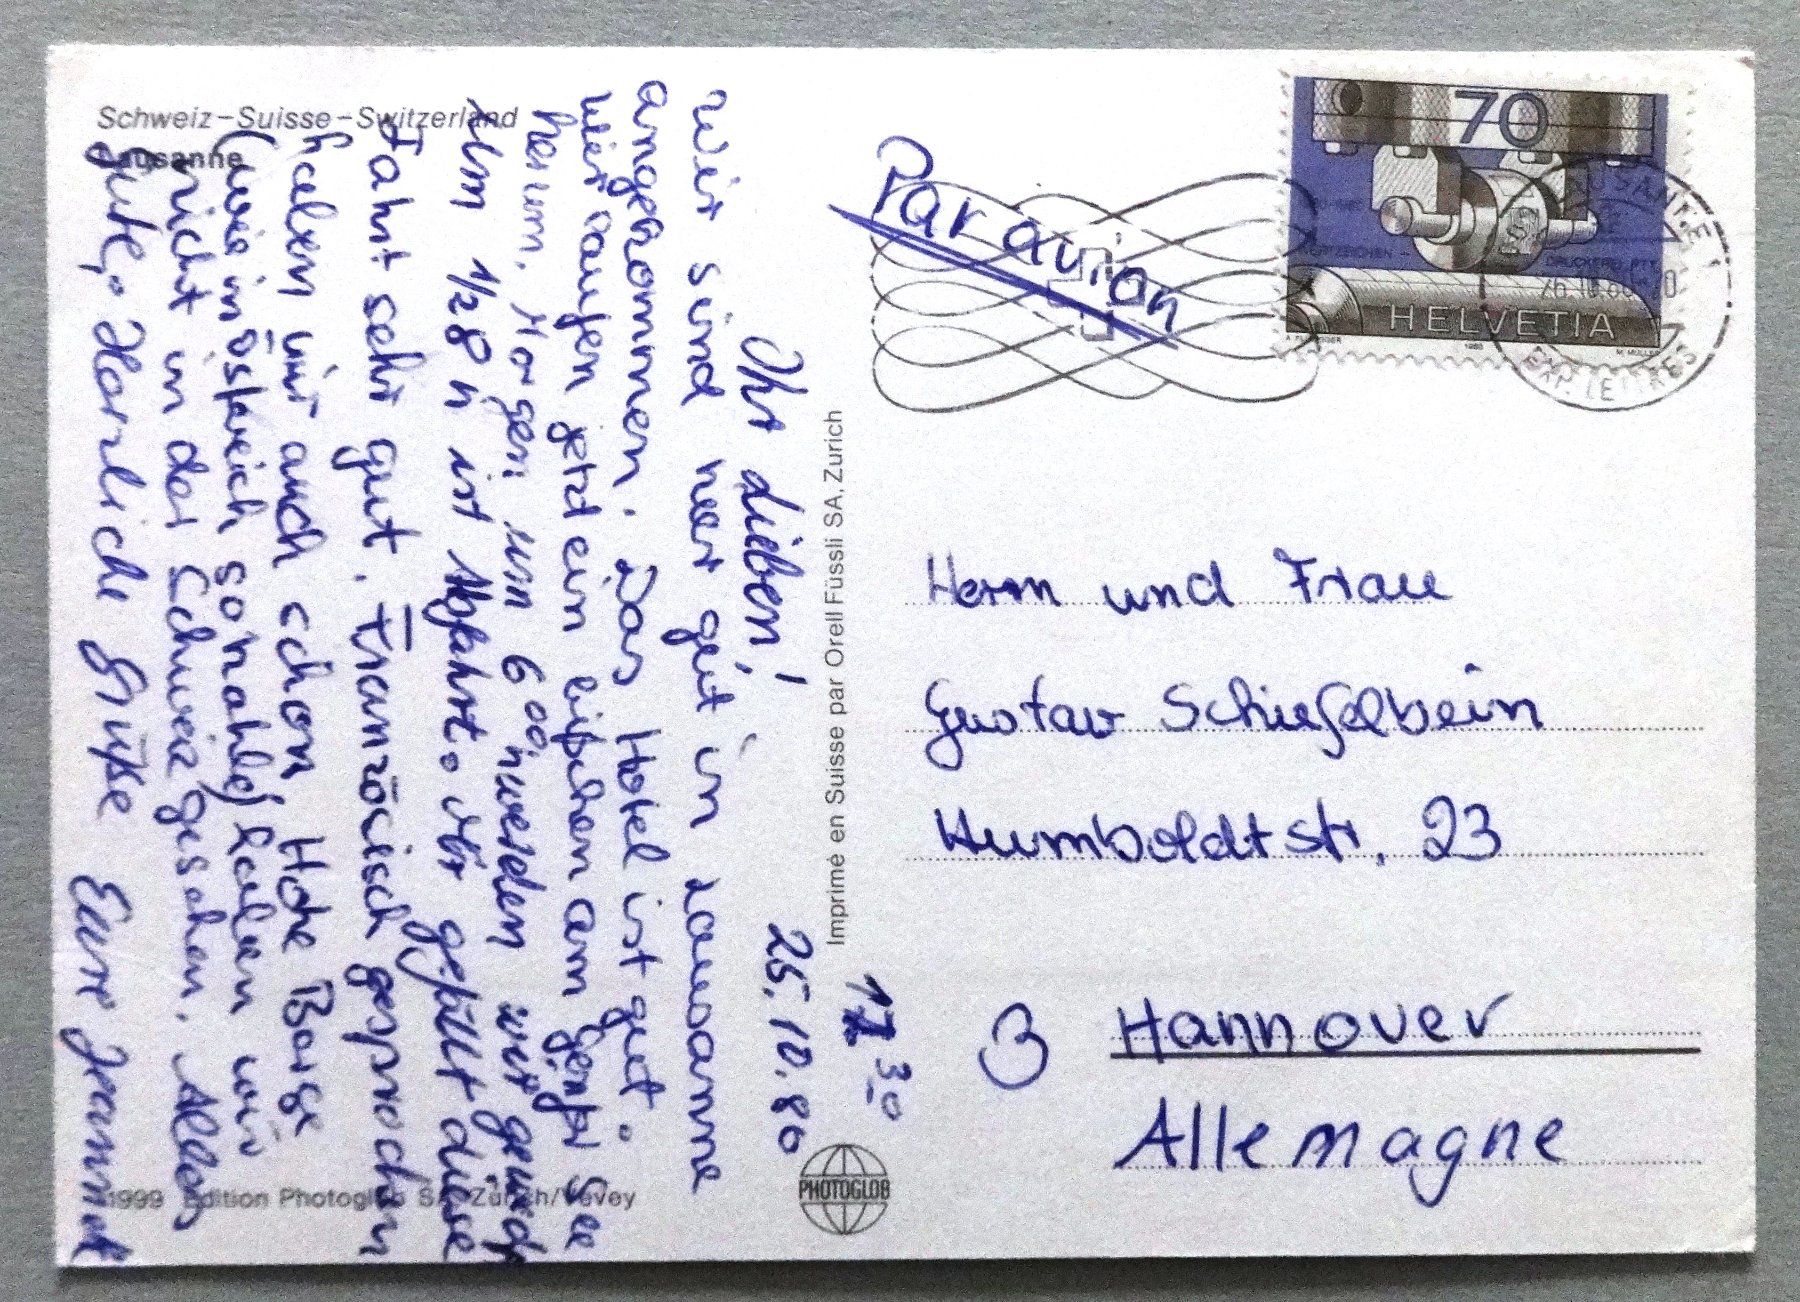 Schweiz-Suisse-Switzerland
Lausanne
25.10.86
17 30
Ihr Lieben!
wir sind hier gut in Lausanne
angekommen. Das Hotel ist gut.
wir laufen jetzt ein bißchen am Genfer See
herum. Morgen um 6 00 h werden wir geweckt
um 1/2 8 h ist Abfahrt. Mir gefällt diese
Fahrt sehr gut. Französisch gesprochen
haben wir auch schon. Hohe Berge
(wie in so nahe) haben wir
nicht in der Schweiz gesehen. Alles
Gute, Herzliche Grüße Eure
1999 Edition Photoglob SA, Zürich/Vevey
Imprimé en Suisse par Orell Füssli SA, Zurich
PHOTOGLOB
Par avion
70
HELVETIA
LAUSANNE 1
EXP. LETTRES
Herrn und Frau
Gustav Schiefelbein
Humboldtstr. 23
3 Hannover
Allemagne